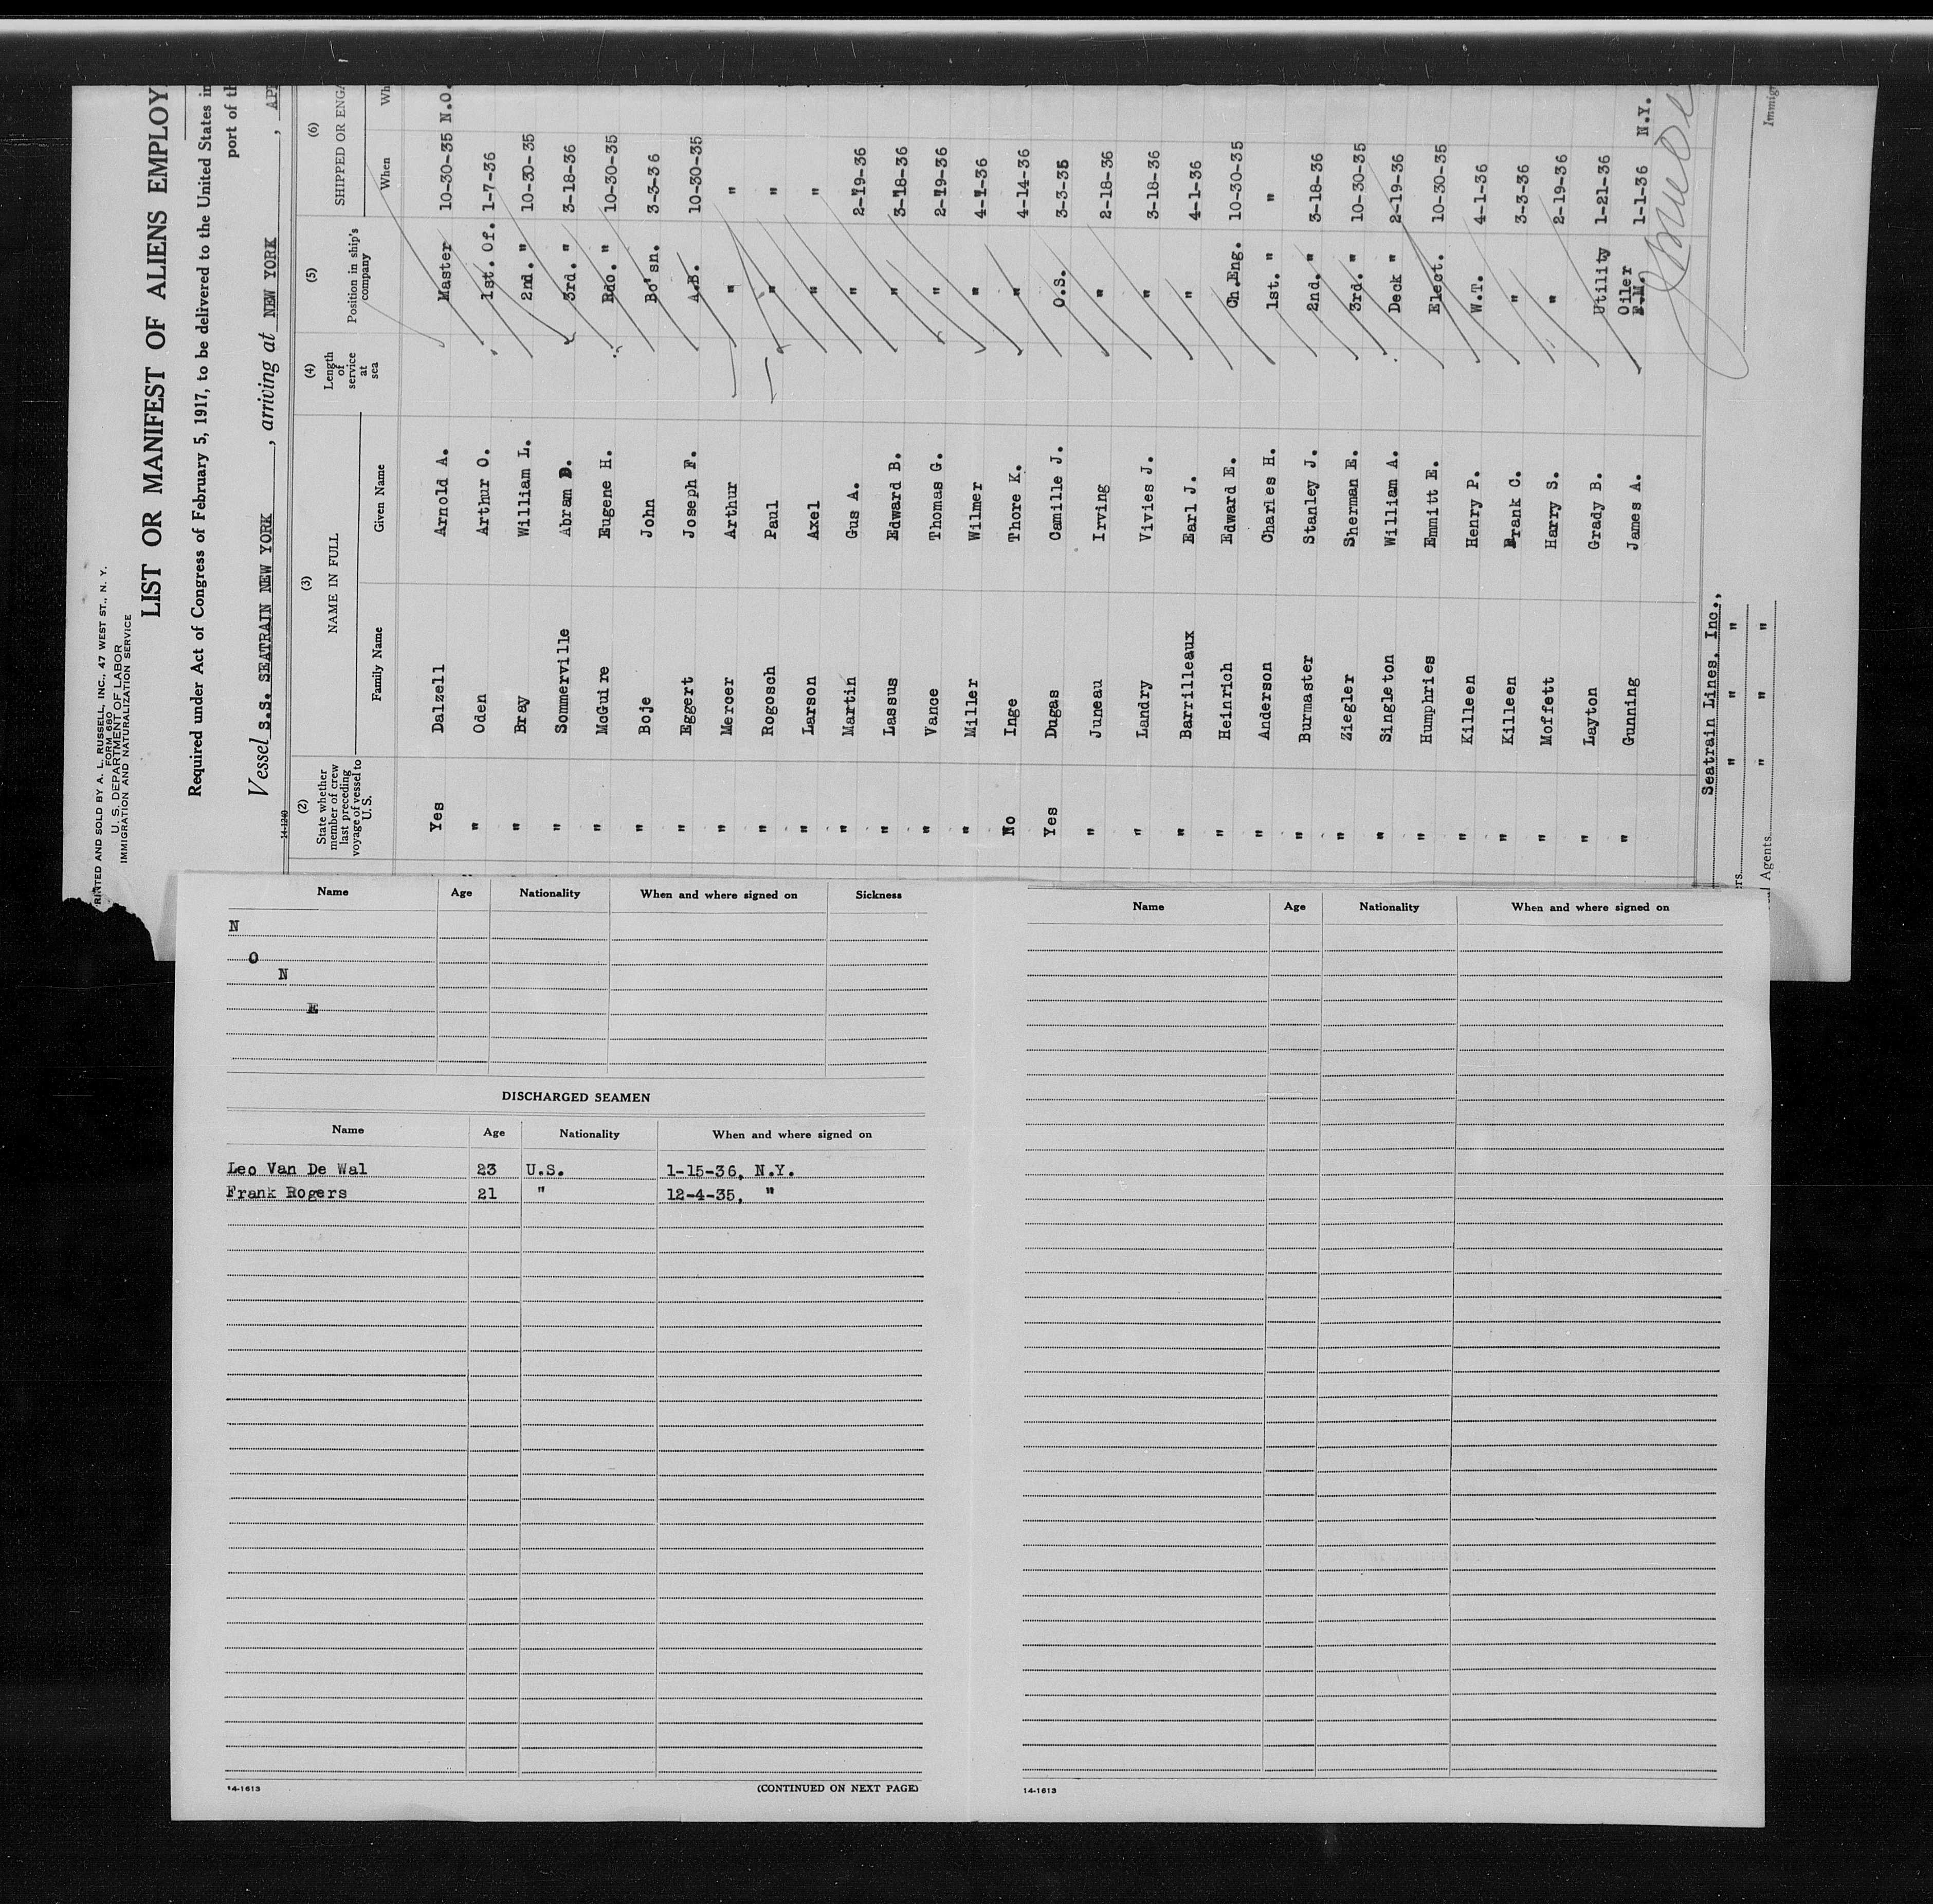 PRINTED AND SOLD BY A. L. RUSSELL, INC., 47 WEST ST., N. Y.
FORM 680
U. S. DEPARTMENT OF LABOR
IMMIGRATION AND NATURALIZATION SERVICE
LIST OR MANIFEST OF ALIENS EMPLOY
Required under Act of Congress of February 5, 1917, to be delivered to the United States in
port of th
Vessel S.S. SEATRAIN NEW YORK, arriving at NEW YORK, AP
14-1240
(2) (3) (4) (5) (6)
State whether member of crew last preceding voyage of vessel to U. S. NAME IN FULL Length of service at sea Position in ship's company SHIPPED OR ENGA
Family Name Given Name When Wh
Yes Dalzell Arnold A. Master 10-30-35 N.O.
" Oden Arthur O. 1st. Of. 1-7-36
" Bray William L. 2nd. " 10-30-35
" Sommerville Abram D. 3rd. " 3-18-36
" McGuire Eugene H. Rdo. " 10-30-35
" Boje John Bo'sn. 3-3-36
" Eggert Joseph F. A.B. 10-30-35
" Mercer Arthur " "
" Rogosch Paul " "
" Larson Axel " "
" Martin Gus A. " 2-19-36
" Lassus Edward B. " 3-18-36
" Vance Thomas G. " 2-19-36
" Miller Wilmer " 4-1-36
No Inge Thore K. " 4-14-36
Yes Dugas Camille J. O.S. 3-3-35
" Juneau Irving " 2-18-36
" Landry Vivies J. " 3-18-36
" Barrilleaux Earl J. " 4-1-36
" Heinrich Edward E. Ch.Eng. 10-30-35
" Anderson Charles H. 1st. " "
" Burmaster Stanley J. 2nd. " 3-18-36
" Ziegler Sherman E. 3rd. " 10-30-35
" Singleton William A. Deck " 2-19-36
" Humphries Emmitt E. Elect. 10-30-35
" Killeen Henry P. W.T. 4-1-36
" Killeen Frank C. " 3-3-36
" Moffett Harry S. " 2-19-36
" Layton Grady B. Utility 1-21-36
" Gunning James A. Oiler F.M. 1-1-36 N.Y.
Seatrain Lines, Inc.,
" " " "
rs.
" " " "
l Agents
Immigr
Name Age Nationality When and where signed on Sickness
N
O
N
E
DISCHARGED SEAMEN
Name Age Nationality When and where signed on
Leo Van De Wal 23 U.S. 1-15-36, N.Y.
Frank Rogers 21 " 12-4-35, "
14-1613 (CONTINUED ON NEXT PAGE)
Name Age Nationality When and where signed on
14-1613